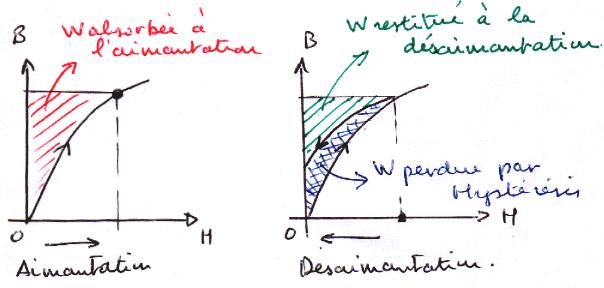 W absorbée à
l'aimantation
B
O
H
Aimantation
W restitué à la
désaimantation.
B
W perdue par
Hystérésis
O
H
Désaimantation.